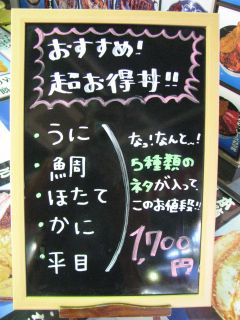 おすすめ!
超お得丼!!
・うに
・鯛
・ほたて
・かに
・平目
なっ!なんと〜!
5種類の
ネタが入って、
このお値段!!
1,700
円